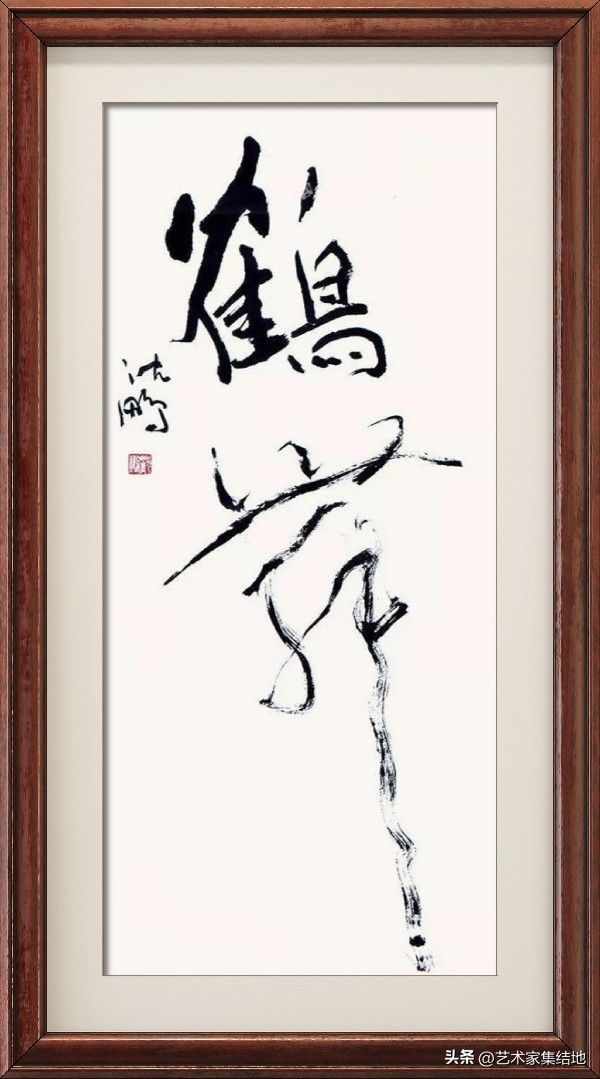 鹤舞
沈鹏
头条 @艺术家集结地